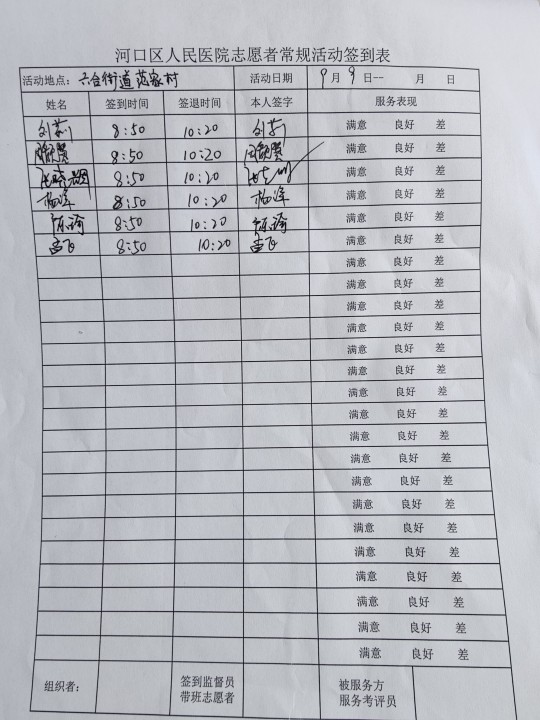 河口区人民医院志愿者常规活动签到表
活动地点: 六合街道范家村 活动日期 9月9日-- 月 日
姓名 签到时间 签退时间 本人签字 服务表现
8:50 10:20 满意 良好 差
8:50 10:20 满意 良好 差
8:50 10:20 满意 良好 差
杨峰 8:50 10:20 杨峰 满意 良好 差
8:50 10:20 满意 良好 差
孟飞 8:50 10:20 孟飞 满意 良好 差
满意 良好 差
满意 良好 差
满意 良好 差
满意 良好 差
满意 良好 差
满意 良好 差
满意 良好 差
满意 良好 差
满意 良好 差
满意 良好 差
满意 良好 差
满意 良好 差
满意 良好 差
满意 良好 差
满意 良好 差
满意 良好 差
满意 良好 差
满意 良好 差
组织者: 签到监督员 被服务方
带班志愿者 服务考评员